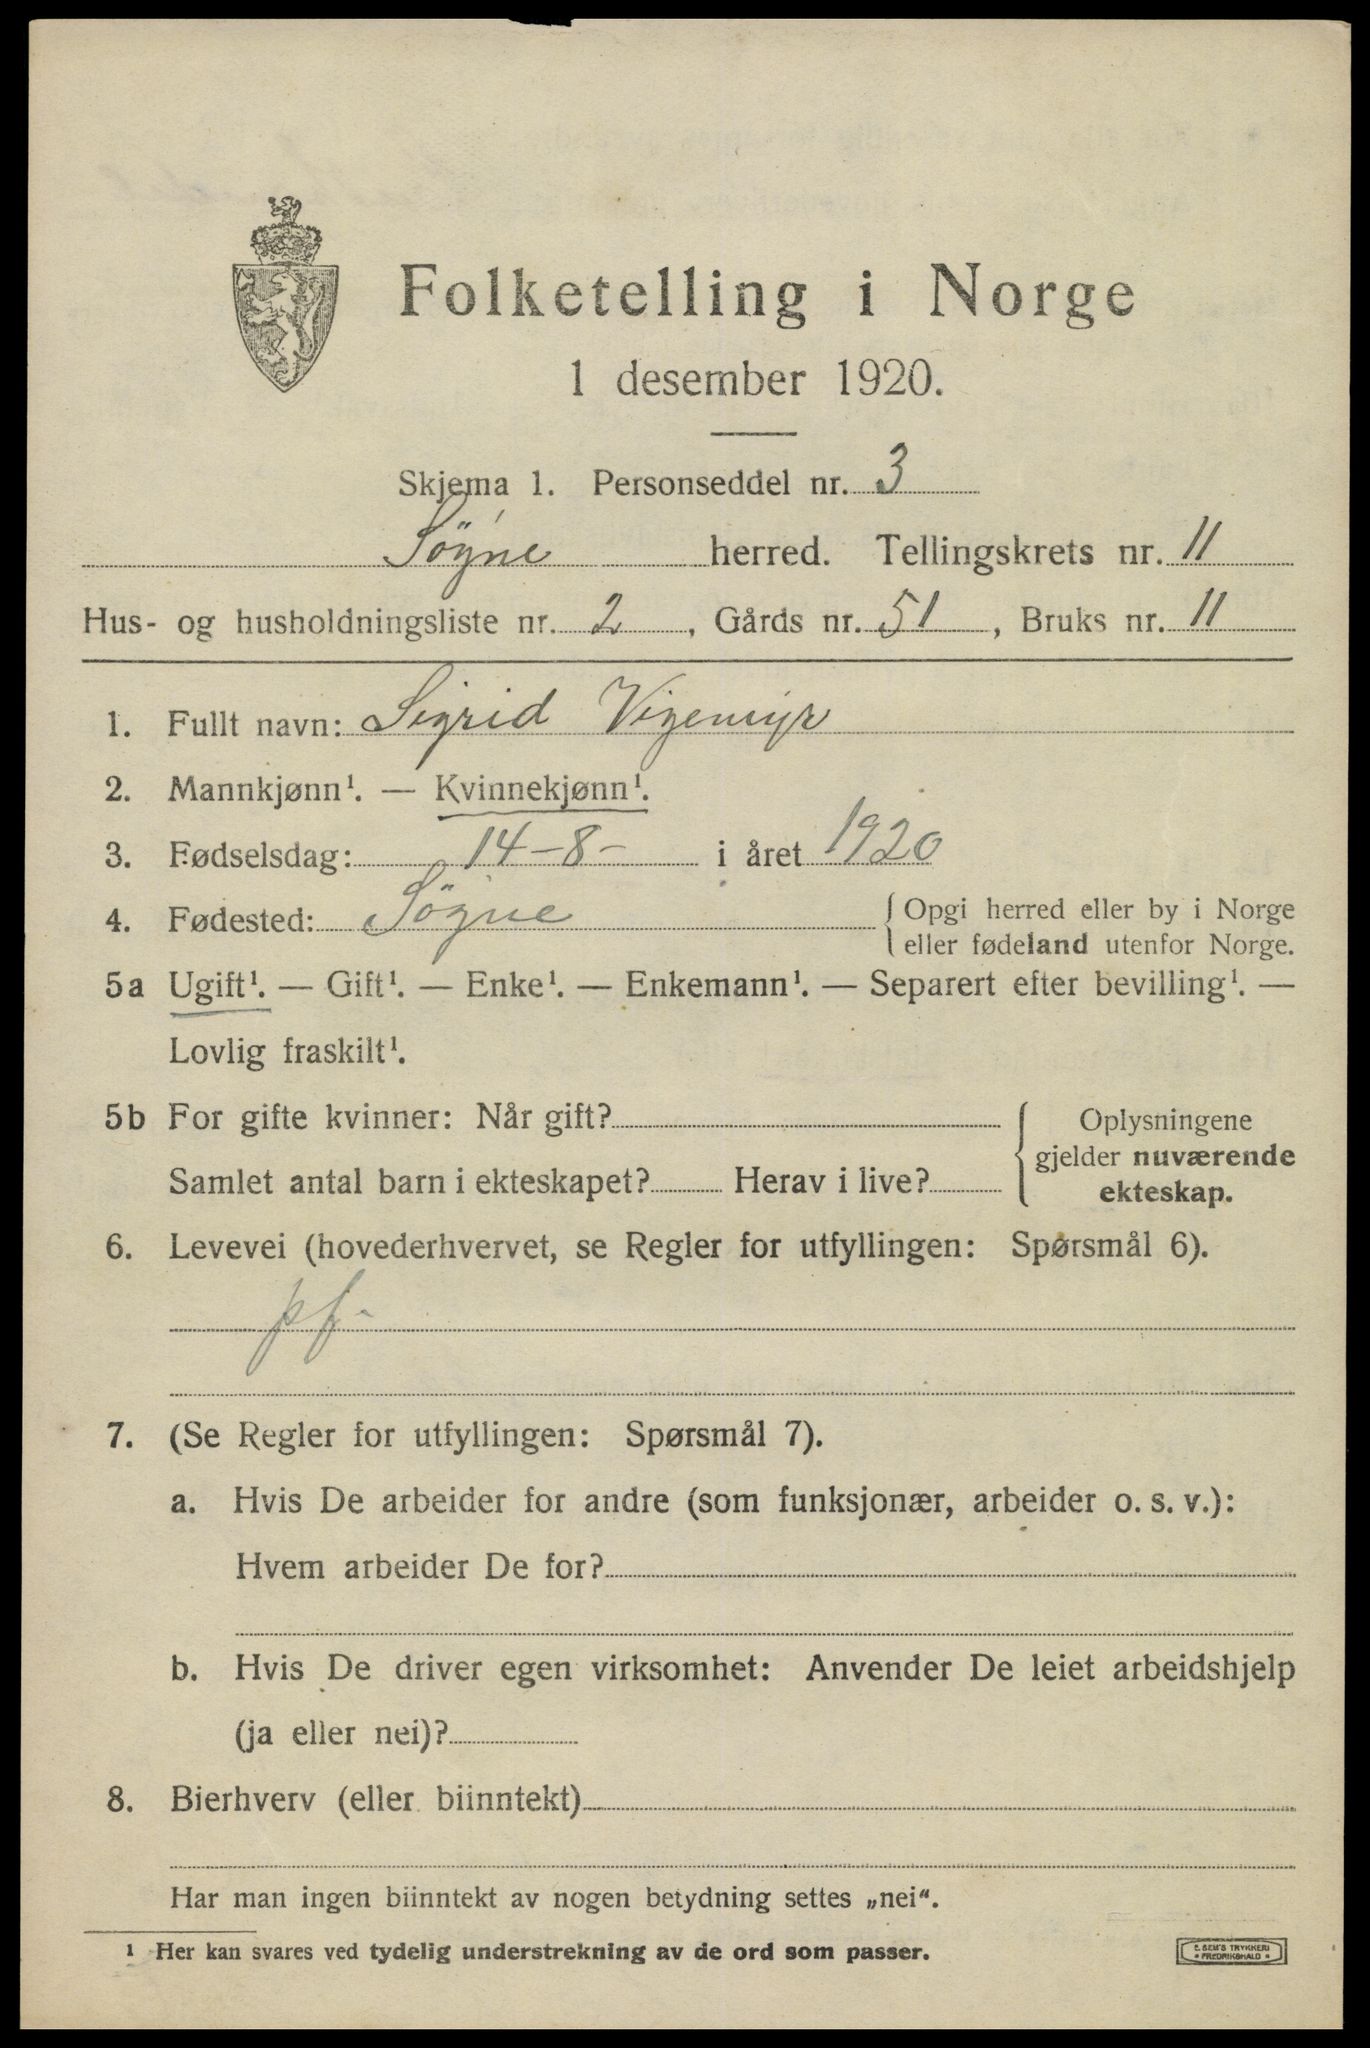 Folketelling i Norge
1 desember 1920.
Skjema 1. Personseddel nr. 3
Søgne herred. Tellingskrets nr. 11
Hus- og husholdningsliste nr. 2, Gårds nr. 51, Bruks nr. 11
1. Fullt navn: Sigrid Vigemyr
2. Mannkjønn¹. — Kvinnekjønn¹.
3. Fødselsdag: 14-8- i året 1920
4. Fødested: Søgne { Opgi herred eller by i Norge
eller fødeland utenfor Norge.
5a Ugift¹. — Gift¹. — Enke¹. — Enkemann¹. — Separert efter bevilling¹. —
Lovlig fraskilt¹.
5b For gifte kvinner: Når gift?
Samlet antal barn i ekteskapet? Herav i live?
{ Oplysningene
gjelder nuværende
ekteskap.
6. Levevei (hovederhvervet, se Regler for utfyllingen: Spørsmål 6).
pf.
7. (Se Regler for utfyllingen: Spørsmål 7).
a. Hvis De arbeider for andre (som funksjonær, arbeider o. s. v.):
Hvem arbeider De for?
b. Hvis De driver egen virksomhet: Anvender De leiet arbeidshjelp
(ja eller nei)?
8. Bierhverv (eller biinntekt)
Har man ingen biinntekt av nogen betydning settes „nei“.
¹ Her kan svares ved tydelig understrekning av de ord som passer.
E. SEM'S TRYKKERI
• FREDRIKSHALD •